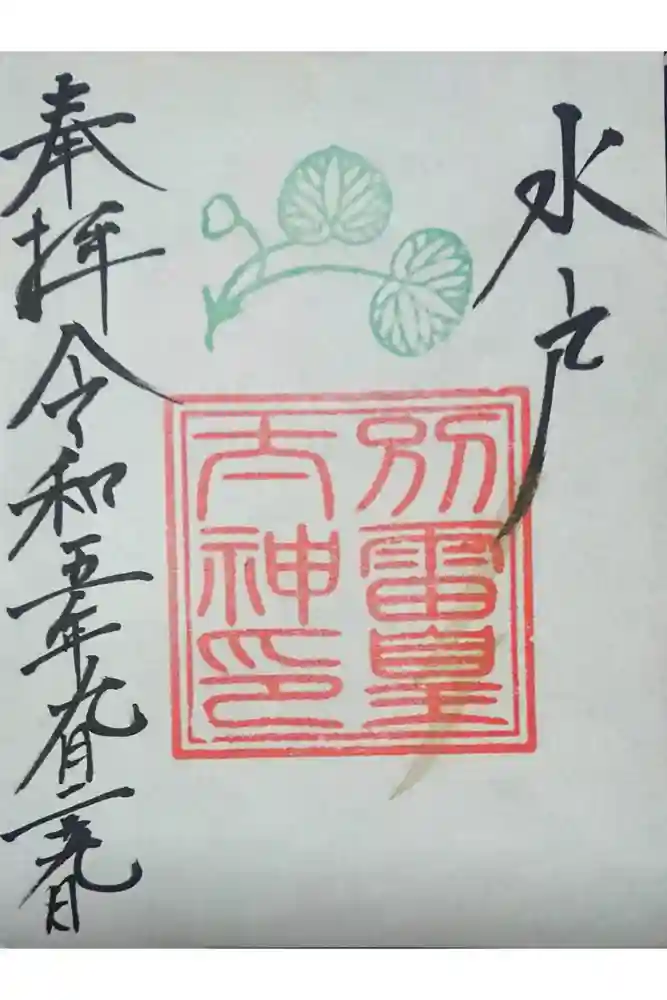 水戸
別雷皇
大神印
奉拝令和五年九月二十九日